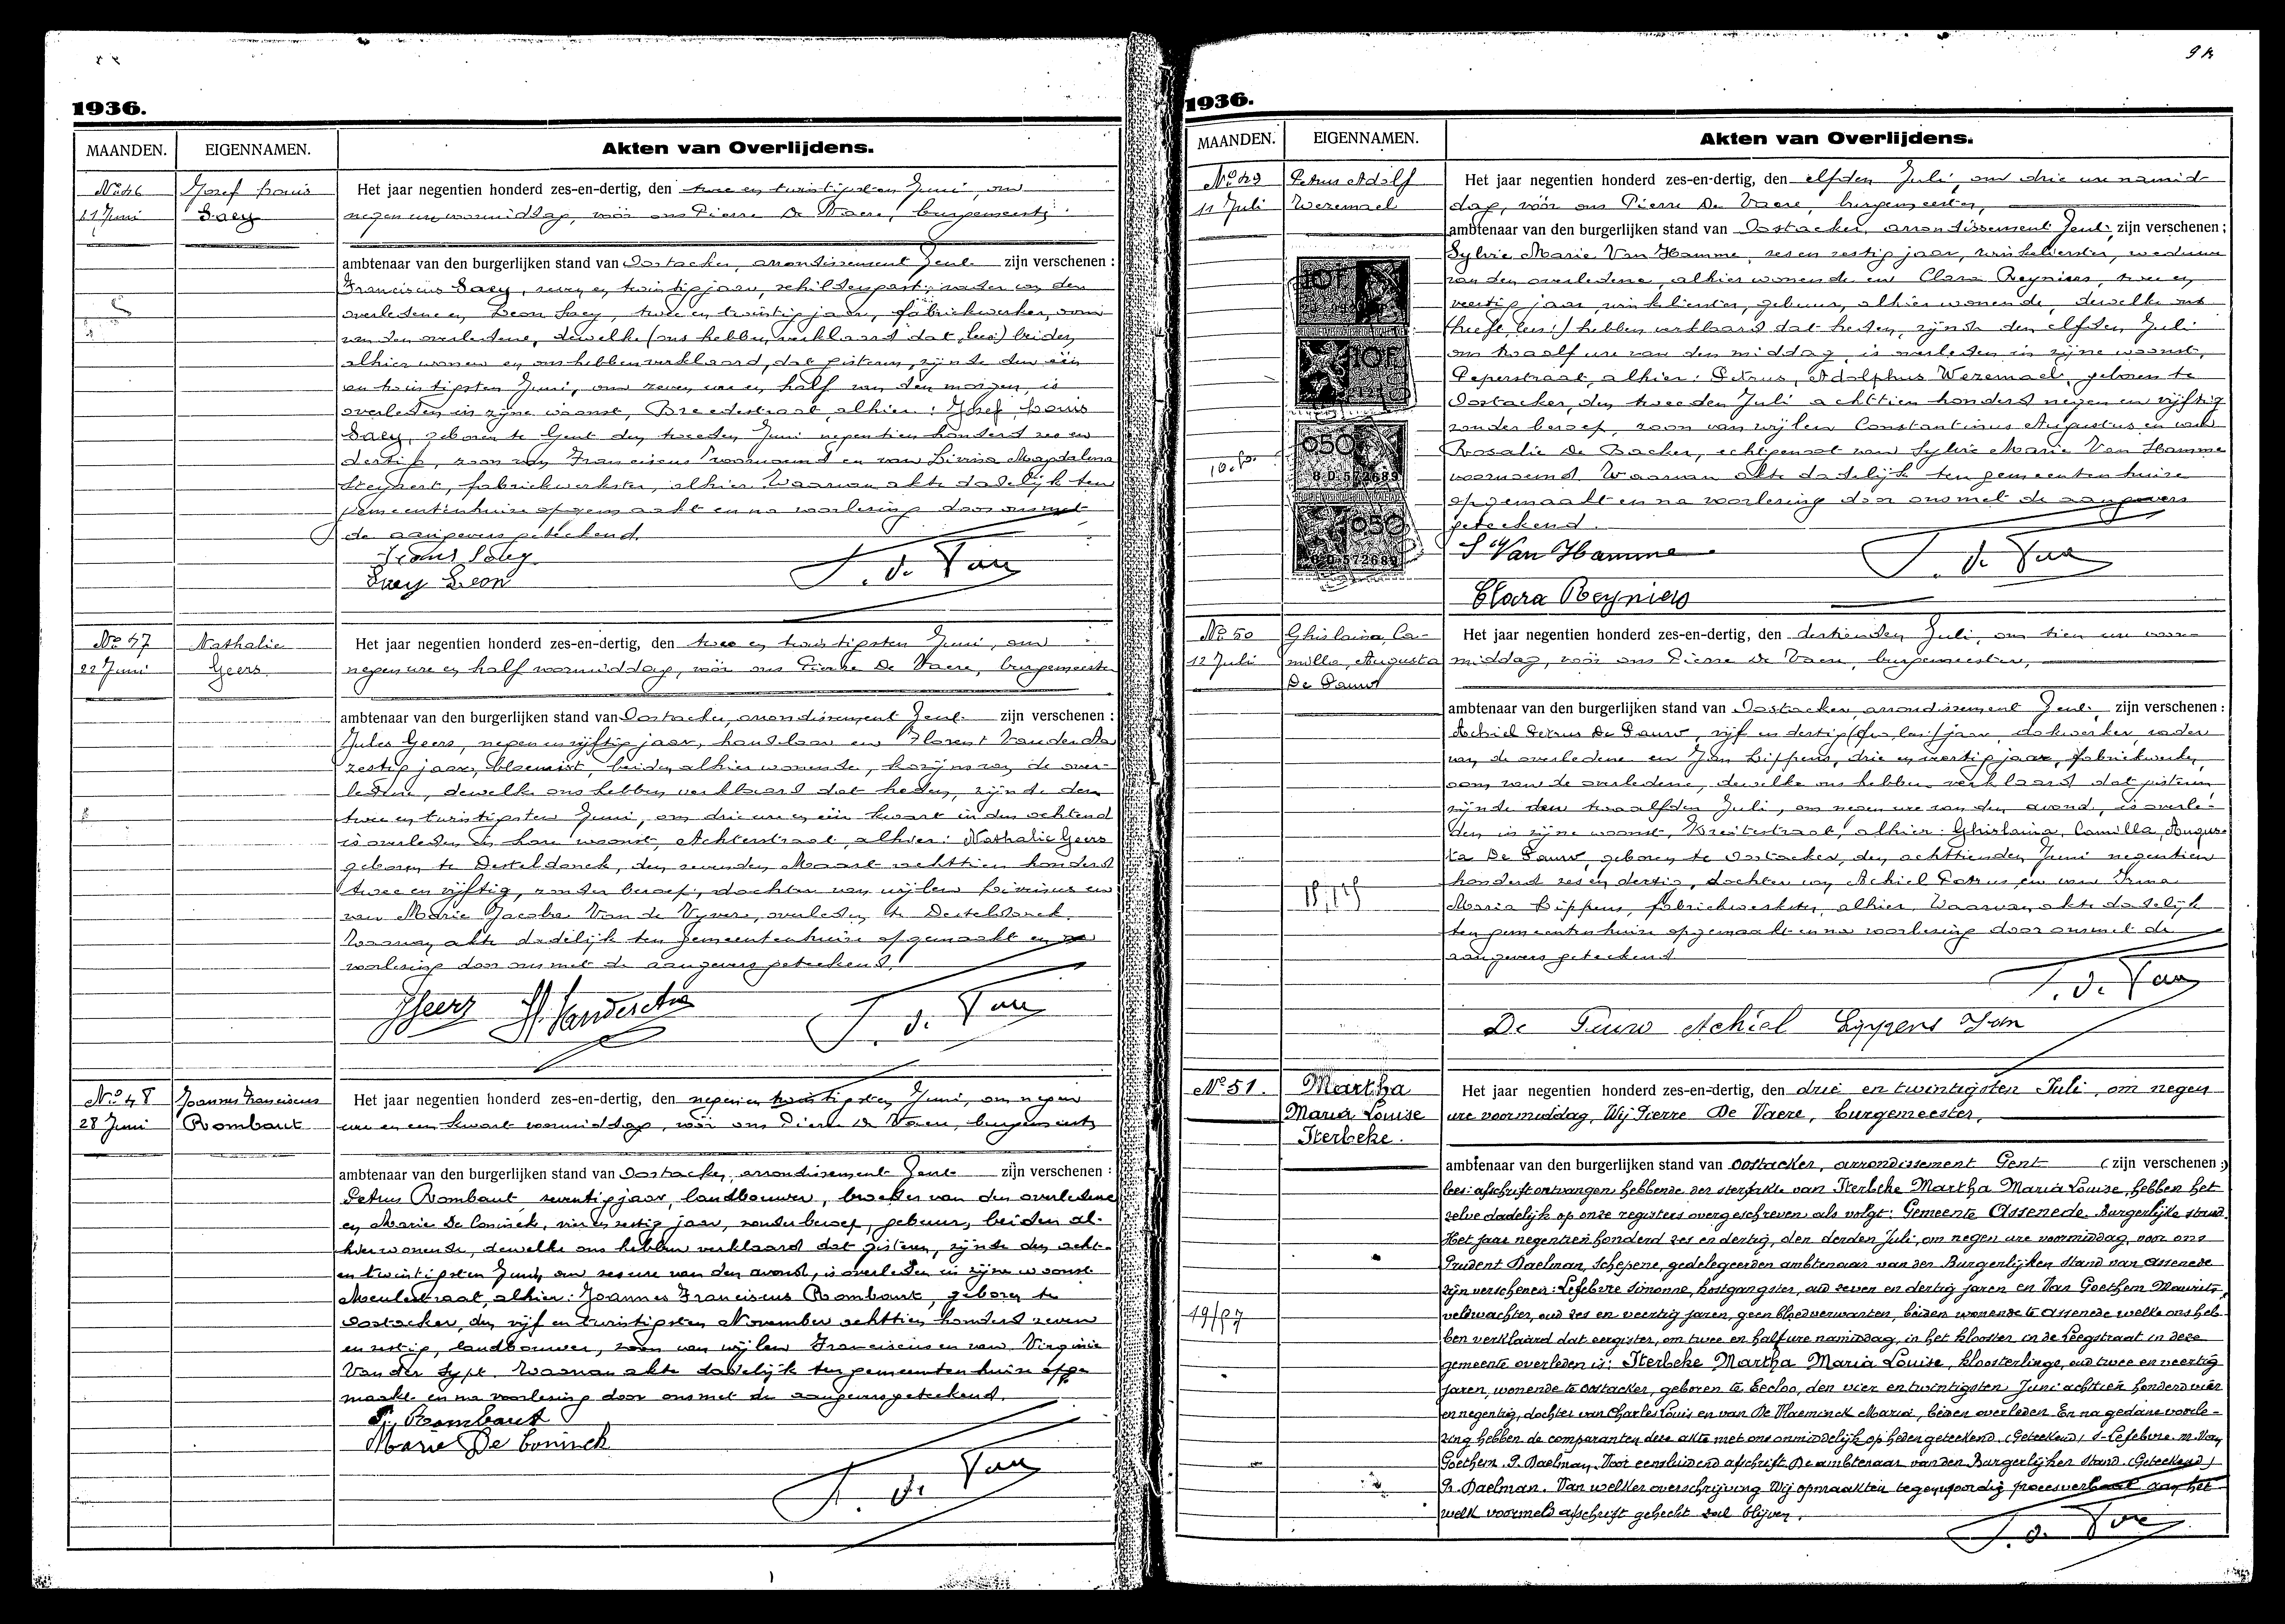 1936.
MAANDEN. EIGENNAMEN. Akten van Overlijdens.
No 46
21 Juni
Jozef Louis
Saey
Het jaar negentien honderd zes-en-dertig, den twee en twintigsten Juni, om
negen ure voormiddag, vóór ons Pierre De Vaere, burgemeester
ambtenaar van den burgerlijken stand van Oostacker, arrondissement Gent zijn verschenen :
Franciscus Saey, zeven en twintig jaar, schildersgast, vader van den
overledene en Leon Saey, twee en twintig jaar, fabriekwerker, oom
van den overledene, dewelke (ons hebben verklaard dat, lees) beiden
alhier wonen en ons hebben verklaard, dat gisteren, zijnde den één
en twintigsten Juni, om zeven ure en half van den morgen, is
overleden in zijne woonst, Breedestraat alhier : Jozef Louis
Saey, geboren te Gent den tweeden Juni negentien honderd zes en
dertig, zoon van Franciscus voornoemd en van Livina Magdalena
Steyaert, fabriekwerkster, alhier. Waarvan akte dadelijk ten
gemeentenhuize opgemaakt en na voorlezing door ons met
de aangevers geteekend.
Frans Saey
Saey Leon
P. de Vae
No 47
22 Juni
Nathalie
Geers
Het jaar negentien honderd zes-en-dertig, den twee en twintigsten Juni, om
negen ure en half voormiddag, vóór ons Pierre De Vaere, burgemeester
ambtenaar van den burgerlijken stand van Oostacker, arrondissement Gent zijn verschenen :
Jules Geers, negen en vijftig jaar, handelaar en Florent Vander
zestig jaar, bloemist, beiden alhier wonende, kozijns van de over-
ledene, dewelke ons hebben verklaard dat heden, zijnde den
twee en twintigsten Juni, om drie ure en één kwart in den ochtend
is overleden in hare woonst, Achterstraat, alhier : Nathalie Geers
geboren te Desteldonck, den zevenden Maart achttien honderd
twee en vijftig, zonder beroep, dochter van wijlen Livinus en
van Marie Jacoba Van de Vyvere, overleden te Desteldonck.
Waarvan akte dadelijk ten gemeentenhuize opgemaakt en na
voorlezing door ons met de aangevers geteekend.
JGeers
P. de Vae
No 48
28 Juni
Joannes Franciscus
Rombaut
Het jaar negentien honderd zes-en-dertig, den negen en twintigsten Juni, om negen
ure en een kwart voormiddag, vóór ons Pierre De Vaere, burgemeester
ambtenaar van den burgerlijken stand van Oostacker, arrondissement Gent zijn verschenen :
Petrus Rombaut, zeventig jaar, landbouwer, broeder van den overledene
en Marie De Coninck, vier en zestig jaar, zonder beroep, gebuur, beiden al-
hier wonende, dewelke ons hebben verklaard dat gisteren, zijnde den acht-
en twintigsten Juni, om zes ure van den avond, is overleden in zijne woonst
Meulestraat, alhier : Joannes Franciscus Rombaut, geboren te
Oostacker, den vijf en twintigsten November achttien honderd zeven
en zestig, landbouwer, zoon van wijlen Franciscus en van Virginie
Van der Sypt. Waarvan akte dadelijk ten gemeentenhuize opge-
maakt en na voorlezing door ons met de aangevers geteekend.
P. Rombaut
Marie De Coninck
P. de Vae
1936.
MAANDEN. EIGENNAMEN. Akten van Overlijdens.
No 49
11 Juli
Petrus Adolf
Wezemael
Het jaar negentien honderd zes-en-dertig, den elfden Juli, om drie ure namid-
dag, vóór ons Pierre De Vaere, burgemeester,
ambtenaar van den burgerlijken stand van Oostacker, arrondissement Gent, zijn verschenen :
Sylvie Marie Van Hamme, zes en zestig jaar, winkelierster, weduwe
van den overledene, alhier wonende en Clara Reyniers, twee en
veertig jaar, winkelierster, gebuur, alhier wonende, dewelke ons
(heeft, lees:) hebben verklaard dat heden, zijnde den elfden Juli
om twaalf ure van den middag, is overleden in zijne woonst,
Peperstraat, alhier : Petrus, Adolphus Wezemael, geboren te
Oostacker, den tweeden Juli achttien honderd negen en vijftig
zonder beroep, zoon van wijlen Constantinus Augustus en van
Rosalie De Backer, echtgenoot van Sylvie Marie Van Hamme
voornoemd. Waarvan akte dadelijk ten gemeentenhuize
opgemaakt en na voorlezing door ons met de aangevers
geteekend.
S Van Hamme
Clara Reyniers
P. de Vae
10F
10F
050
050
No 50
12 Juli
Ghislaina, Ca-
milla, Augusta
De Pauw
Het jaar negentien honderd zes-en-dertig, den dertienden Juli, om tien ure voor-
middag, vóór ons Pierre De Vaere, burgemeester,
ambtenaar van den burgerlijken stand van Oostacker, arrondissement Gent, zijn verschenen :
Achiel Petrus De Pauw, vijf en dertig jaar, dokwerker, vader
van de overledene en Jan Lippens, drie en veertig jaar, fabriekwerker,
oom van de overledene, dewelke ons hebben verklaard dat gisteren
zijnde den twaalfden Juli, om negen ure van den avond, is overle-
den in zijne woonst, alhier : Ghislaina, Camilla, Augus-
ta De Pauw, geboren te Oostacker, den achttienden Juni negentien
honderd zes en dertig, dochter van Achiel Petrus en van Irma
Maria Lippens, fabriekwerkster, alhier. Waarvan akte dadelijk
ten gemeentenhuize opgemaakt en na voorlezing door ons met de
aangevers geteekend
P. de Vae
De Pauw Achiel Lippens Jan
No 51.
Martha
Maria Louise
Sterbeke.
Het jaar negentien honderd zes-en-dertig, den drie en twintigsten Juli, om negen
ure voormiddag, Wij Pierre De Vaere, burgemeester,
ambtenaar van den burgerlijken stand van Oostacker, arrondissement Gent (zijn verschenen :)
lees: afschrift ontvangen hebbende der sterfakte van Sterbeke Martha Maria Louise, hebben het
zelve dadelijk op onze registers overgeschreven als volgt: Gemeente Assenede. Burgerlijke stand.
Het jaar negentien honderd zes en dertig, den derden Juli, om negen ure voormiddag, voor ons
Prudent Daelman, Schepene, gedelegeerden ambtenaar van den Burgerlijken Stand van Assenede
zijn verschenen: Lefebvre Simonne, kostgangster, oud zeven en dertig jaren en Van Goethem Maurits,
veldwachter, oud zes en veertig jaren, geen bloedverwanten, beiden wonende te Assenede welke ons heb-
ben verklaard dat eergister, om twee en half ure namiddag, in het klooster in de Leegstraat in deze
gemeente overleden is: Sterbeke Martha Maria Louise, kloosterlinge, oud twee en veertig
jaren, wonende te Oostacker, geboren te Eecloo, den vier en twintigsten Juni achttien honderd vier
en negentig, dochter van Charles Louis en van De Vlaeminck Maria, beiden overleden. En na gedane voorle-
zing hebben de comparanten deze akte met ons onmiddelijk op heden geteekend. (Geteekend) S. Lefebvre. M. Van
Goethem. P. Daelman. Voor eensluidend afschrift De ambtenaar van den Burgerlijken Stand (Geteekend)
P. Daelman. Van welker overschrijving Wij opmaakten tegenwoordig procesverbaal aan het
welk voormeld afschrift gehecht zal blijven.
P. de Vae